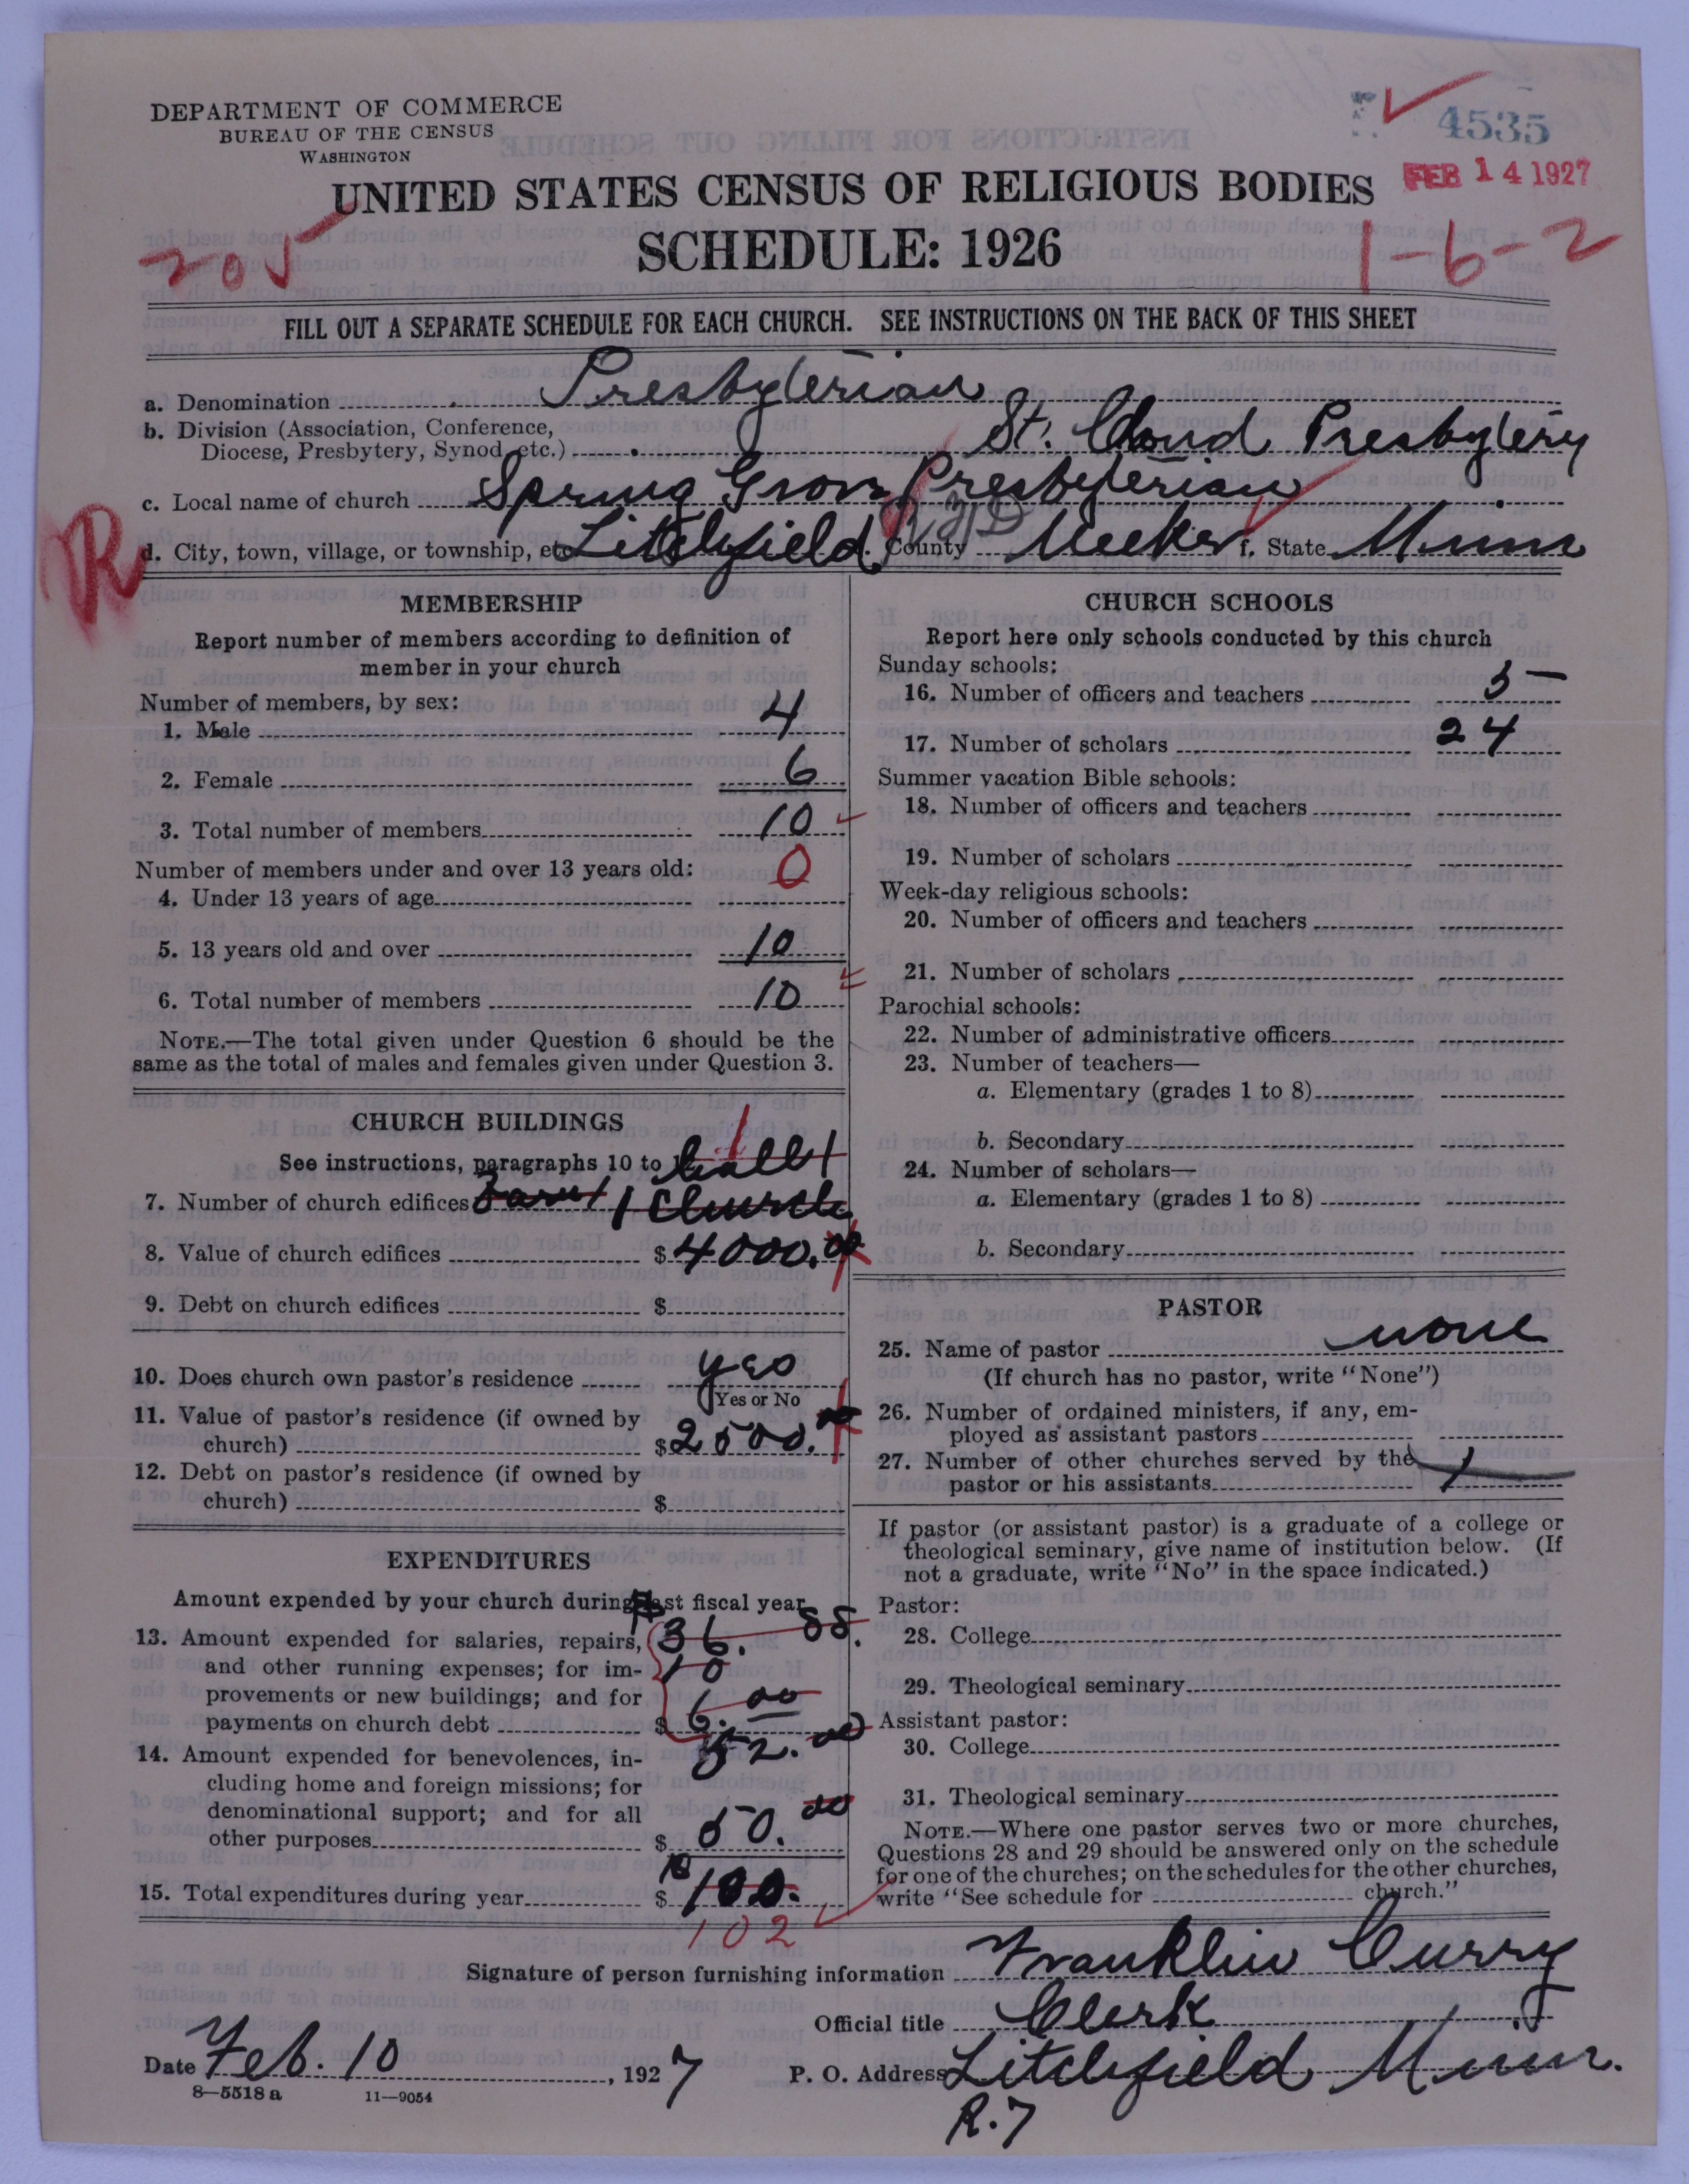 DEPARTMENT OF COMMERCE
BUREAU OF THE CENSUS
WASHINGTON
4535
FEB 14 1927
UNITED STATES CENSUS OF RELIGIOUS BODIES
SCHEDULE: 1926
205
1-6-2
FILL OUT A SEPARATE SCHEDULE FOR EACH CHURCH. SEE INSTRUCTIONS ON THE BACK OF THIS SHEET
a. Denomination Presbyterian
b. Division (Association, Conference,
Diocese, Presbytery, Synod, etc.) St. Cloud Presbytery
c. Local name of church Spring Grove Presbyterian
R
RFD
d. City, town, village, or township, etc Litchfield County Meeker f. State Minn
MEMBERSHIP
Report number of members according to definition of
member in your church
Number of members, by sex:
1. Male 4
2. Female 6
3. Total number of members 10
Number of members under and over 13 years old:
4. Under 13 years of age 0
5. 13 years old and over 10
6. Total number of members 10
NOTE.—The total given under Question 6 should be the
same as the total of males and females given under Question 3.
CHURCH BUILDINGS
See instructions, paragraphs 10 to
1
7. Number of church edifices 1 Church
8. Value of church edifices $4000.00
9. Debt on church edifices $
10. Does church own pastor's residence yes
Yes or No
11. Value of pastor's residence (if owned by
church) $2500.
12. Debt on pastor's residence (if owned by
church) $
EXPENDITURES
Amount expended by your church during last fiscal year
13. Amount expended for salaries, repairs, 36.
and other running expenses; for im- 10
provements or new buildings; and for
payments on church debt $ 6.00
52.00
14. Amount expended for benevolences, in-
cluding home and foreign missions; for
denominational support; and for all
other purposes $ 50.00
15. Total expenditures during year $ 100.
102
CHURCH SCHOOLS
Report here only schools conducted by this church
Sunday schools:
16. Number of officers and teachers 5
17. Number of scholars 24
Summer vacation Bible schools:
18. Number of officers and teachers
19. Number of scholars
Week-day religious schools:
20. Number of officers and teachers
21. Number of scholars
Parochial schools:
22. Number of administrative officers
23. Number of teachers—
a. Elementary (grades 1 to 8)
b. Secondary
24. Number of scholars—
a. Elementary (grades 1 to 8)
b. Secondary
PASTOR
25. Name of pastor none
(If church has no pastor, write "None")
26. Number of ordained ministers, if any, em-
ployed as assistant pastors
27. Number of other churches served by the
pastor or his assistants 1
If pastor (or assistant pastor) is a graduate of a college or
theological seminary, give name of institution below. (If
not a graduate, write "No" in the space indicated.)
Pastor:
28. College
29. Theological seminary
Assistant pastor:
30. College
31. Theological seminary
NOTE.—Where one pastor serves two or more churches,
Questions 28 and 29 should be answered only on the schedule
for one of the churches; on the schedules for the other churches,
write "See schedule for church."
Signature of person furnishing information Franklin Curry
Official title Clerk
Date Feb. 10, 1927 P. O. Address Litchfield Minn.
8—5518 a 11—9054
R. 7